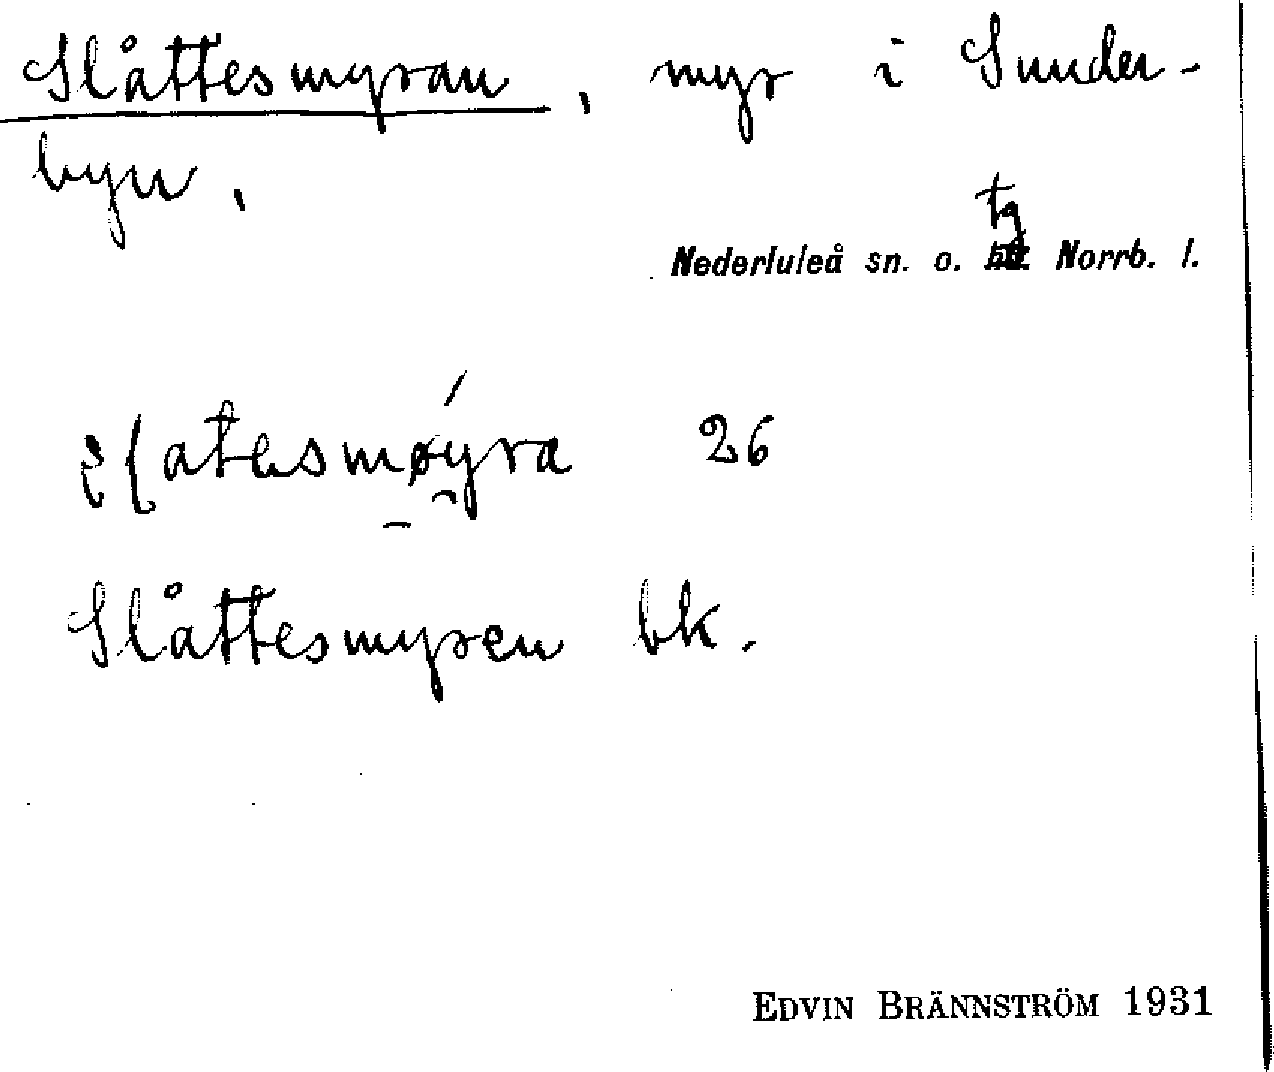 Slåttesmyran, myr i Sunder-
byn.
tg
Nederluleå sn. o. Norrb. l.
26
Slåttesmyren bk.
EDVIN BRÄNNSTRÖM 1931